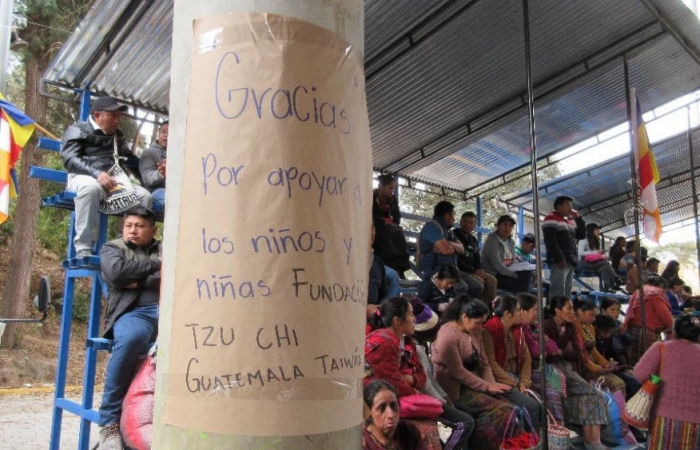 Gracias
por apoyar a
los niños y
niñas FUNDACIÓN
TZU CHI
GUATEMALA TAIWÁN